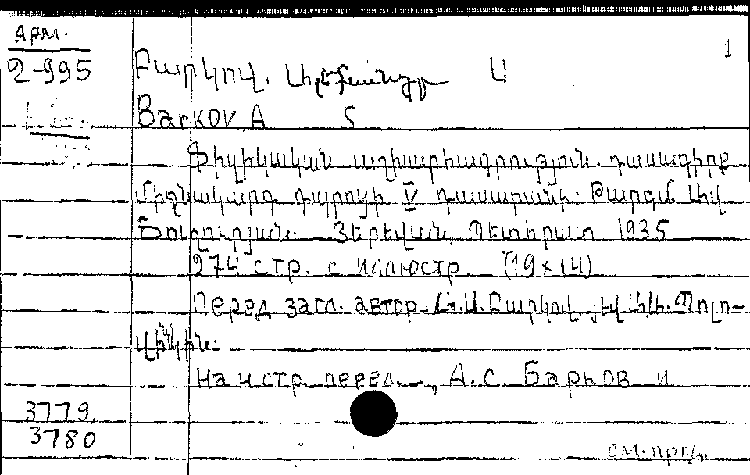 Арм.
2-995
1
Բարկով. Ալեքսանդր Ս
Barkov A S
Ֆիզիկական աշխարհագրություն. դասագիրք
միջնակարգ դպրոցի V դասարանի. Թարգմ.
Ծուղուրյան. Յերեվան, Պետհրատ 1935
274 стр. с иллюстр. (19×14)
Перед загл. автор. Ա.Ս. Բարկով յեվ Պոլո-
վինկին.
На н стр. перед , А.С. Барков и
3779,
3780
см. прд.